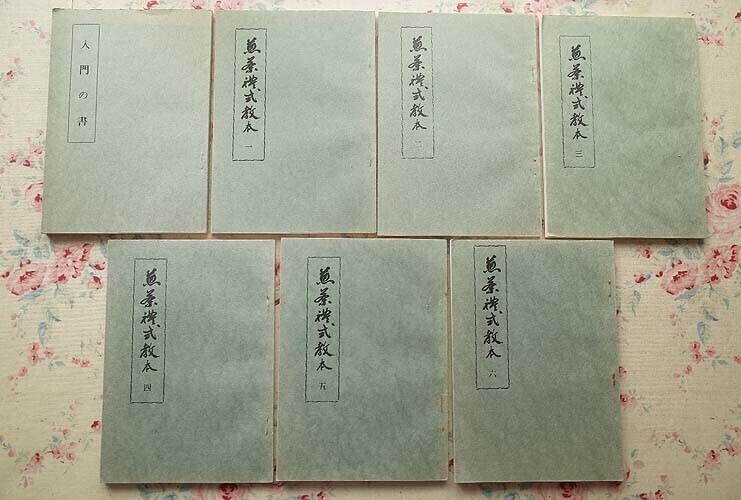 入門の書
煎茶禮式教本 一
煎茶禮式教本 二
煎茶禮式教本 三
煎茶禮式教本 四
煎茶禮式教本 五
煎茶禮式教本 六